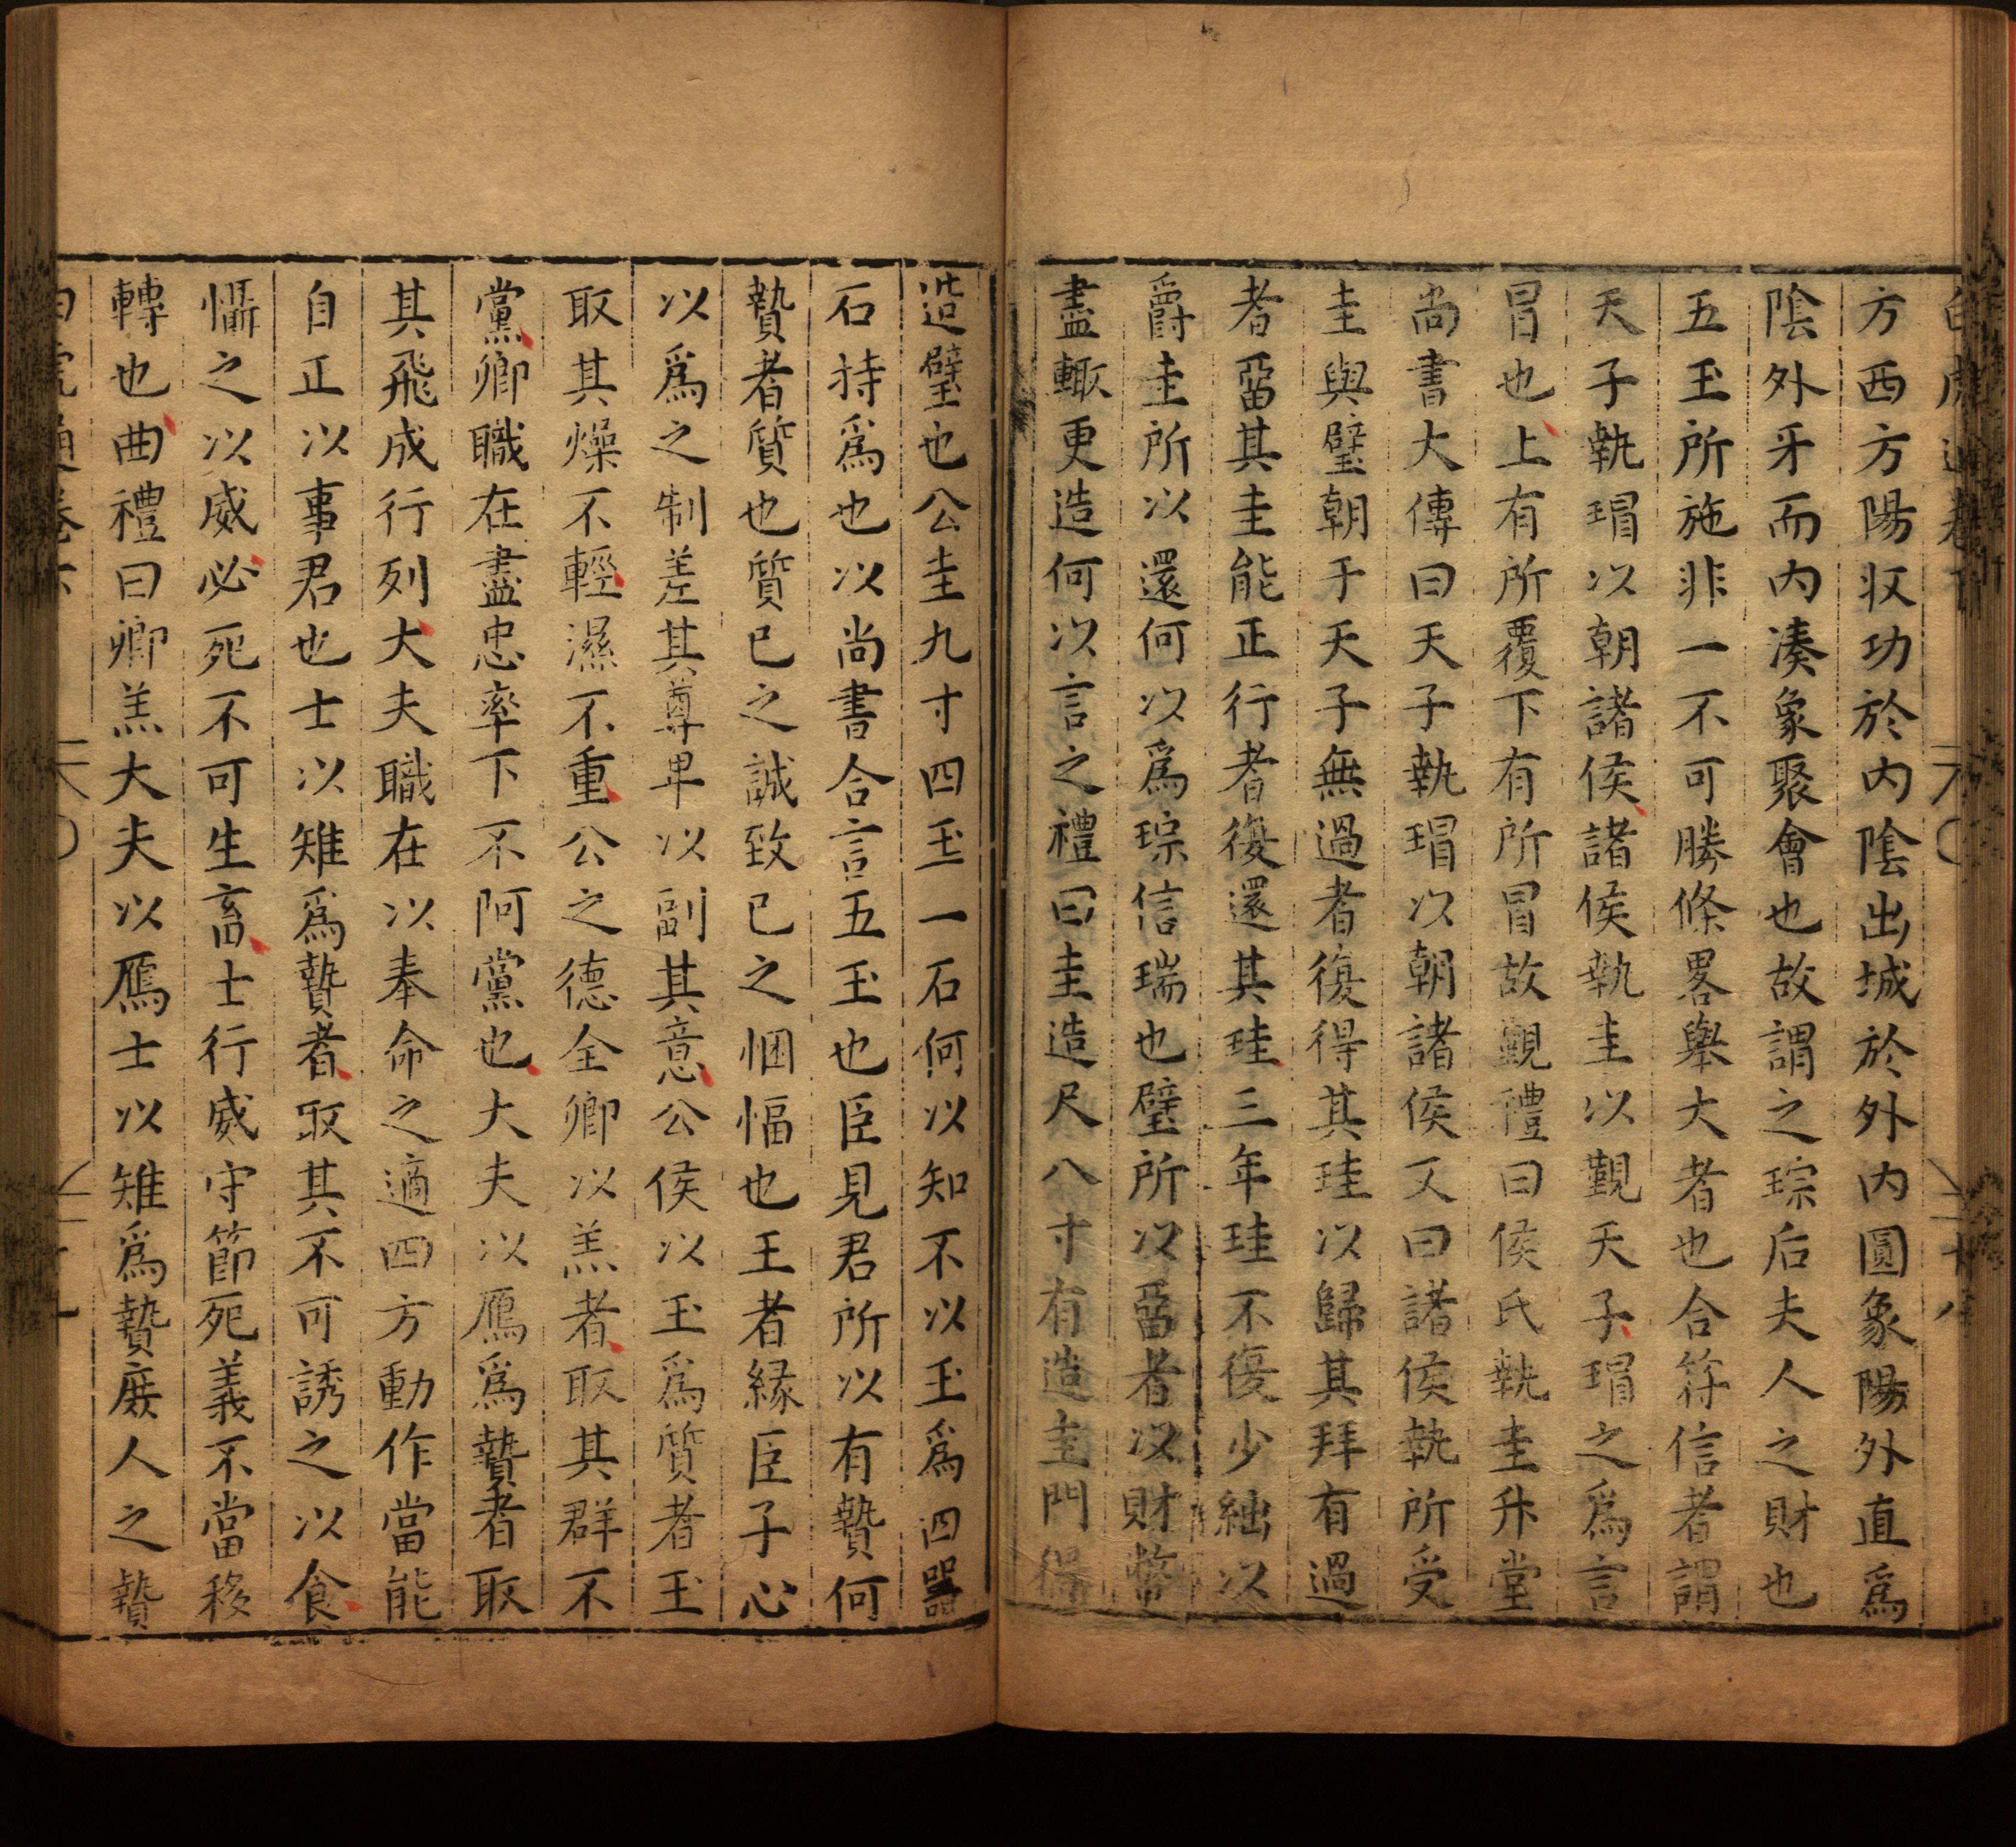 方西方陽収功於内陰出城於外内圓象陽外直爲
陰外牙而内凑象聚會也故謂之琮后夫人之財也
五玉所施非一不可勝條畧舉大者也合符信者謂
天子執瑁以朝諸侯諸侯執圭以覲天子瑁之爲言
冒也上有所覆下有所冒故覲禮曰侯氏執圭升堂
尚書大傳曰天子執瑁以朝諸侯又曰諸侯執所受
圭與璧朝于天子無過者復得其珪以歸其拜有過
者畱其圭能正行者復還其珪三年珪不復少絀以
爵圭所以還何以爲琮信瑞也璧所以畱者以財幣
盡輙更造何以言之禮曰圭造尺八寸有造圭門得
造璧也公圭九寸四玉一石何以知不以玉爲四器
石持爲也以尚書合言五玉也臣見君所以有贄何
贄者質也質已之誠致已之悃愊也王者緣臣子心
以爲之制差其尊卑以副其意公侯以玉爲質者玉
取其燥不輕濕不重公之德全卿以羔者取其群不
黨卿職在盡忠率下不阿黨也大夫以鴈爲贄者取
其飛成行列大夫職在以奉命之適四方動作當能
自正以事君也士以雉爲贄者取其不可誘之以食
懾之以威必死不可生畜士行威守節死義不當移
轉也曲禮曰卿羔大夫以鴈士以雉爲贄庻人之贄